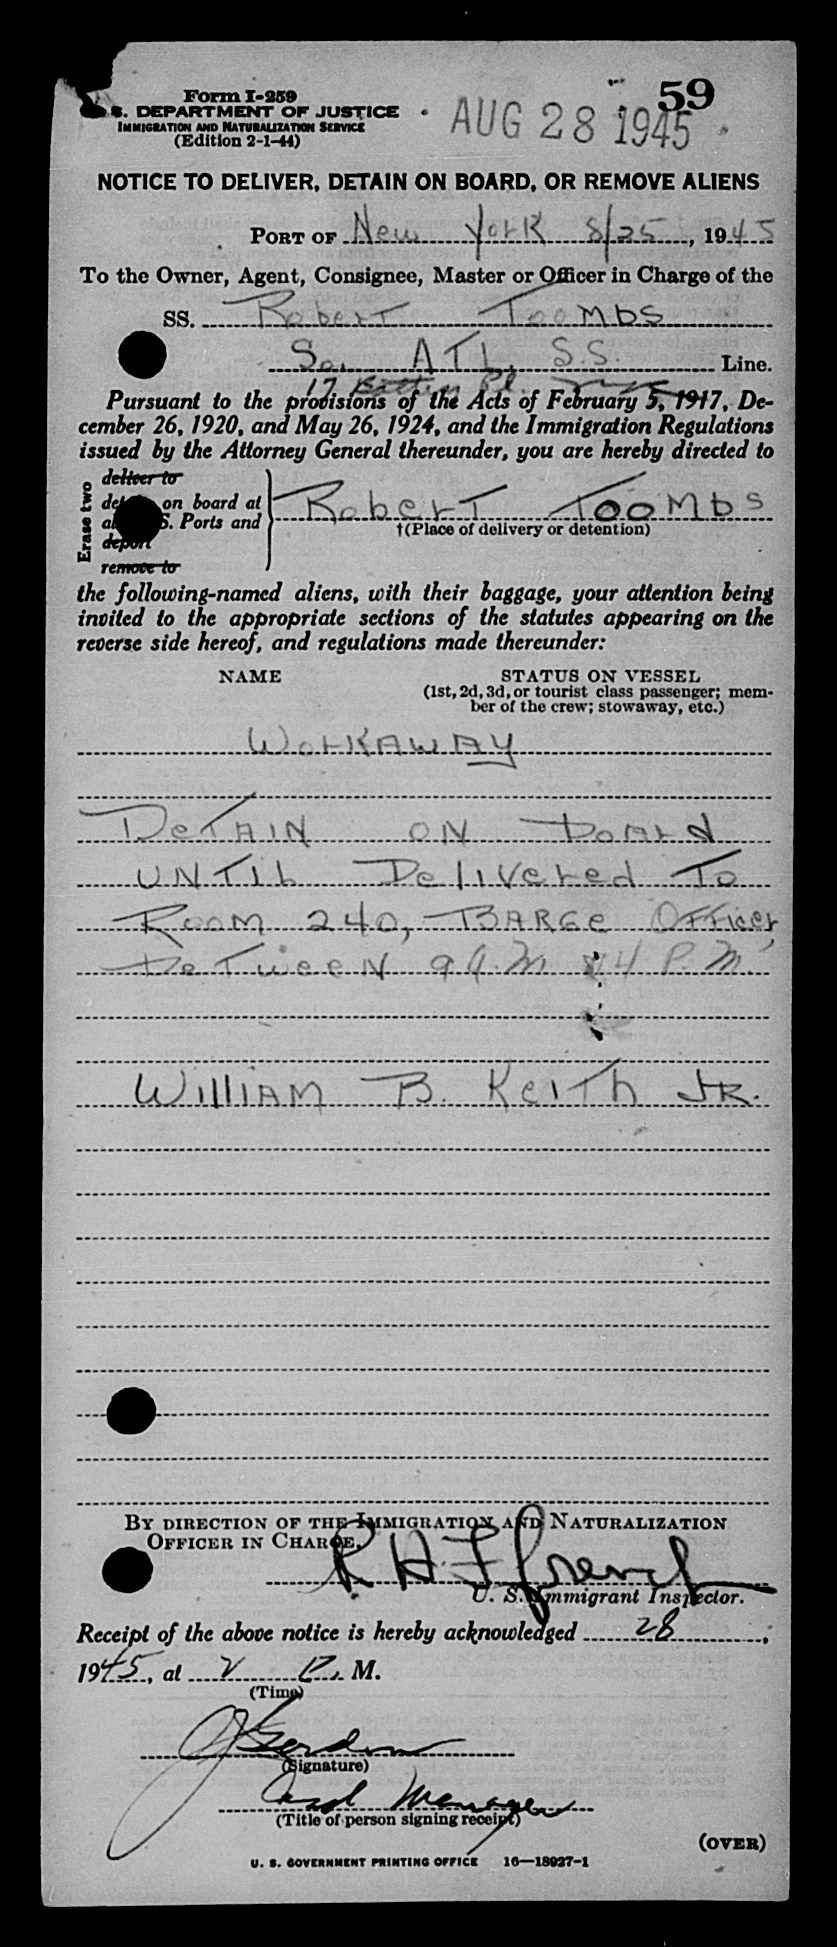 Form I-259
59
S. DEPARTMENT OF JUSTICE
IMMIGRATION AND NATURALIZATION SERVICE
(Edition 2-1-44)
AUG 28 1945
NOTICE TO DELIVER, DETAIN ON BOARD, OR REMOVE ALIENS
PORT OF New York 8/25, 1945
To the Owner, Agent, Consignee, Master or Officer in Charge of the
SS. Robert Toombs
So. ATL. S.S. Line.
17 Battery Pl.
Pursuant to the provisions of the Acts of February 5, 1917, De-
cember 26, 1920, and May 26, 1924, and the Immigration Regulations
issued by the Attorney General thereunder, you are hereby directed to
Erase two
deliver to
on board at
S. Ports and
deport
remove to
Robert Toombs
†(Place of delivery or detention)
the following-named aliens, with their baggage, your attention being
invited to the appropriate sections of the statutes appearing on the
reverse side hereof, and regulations made thereunder:
NAME STATUS ON VESSEL
(1st, 2d, 3d, or tourist class passenger; mem-
ber of the crew; stowaway, etc.)
WorkAWAY
DeTAIN ON BOARD
UNTIL Delivered To
Room 240, BARGe Office,
BeTweeN 9 A.M. & 4 P.M.
WilliAM B. KeiTh JR.
BY DIRECTION OF THE IMMIGRATION AND NATURALIZATION
OFFICER IN CHARGE,
R H F French
U. S. Immigrant Inspector.
Receipt of the above notice is hereby acknowledged 28,
1945, at 2 P. M.
(Time)
(Signature)
Manager
(Title of person signing receipt)
(OVER)
U. S. GOVERNMENT PRINTING OFFICE 16—18927-1